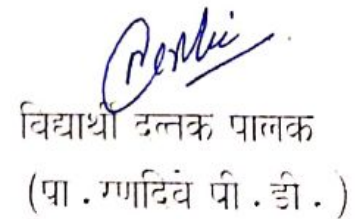 विद्यार्थी दत्तक पालक
(पा . रणदिवे पी . डी . )